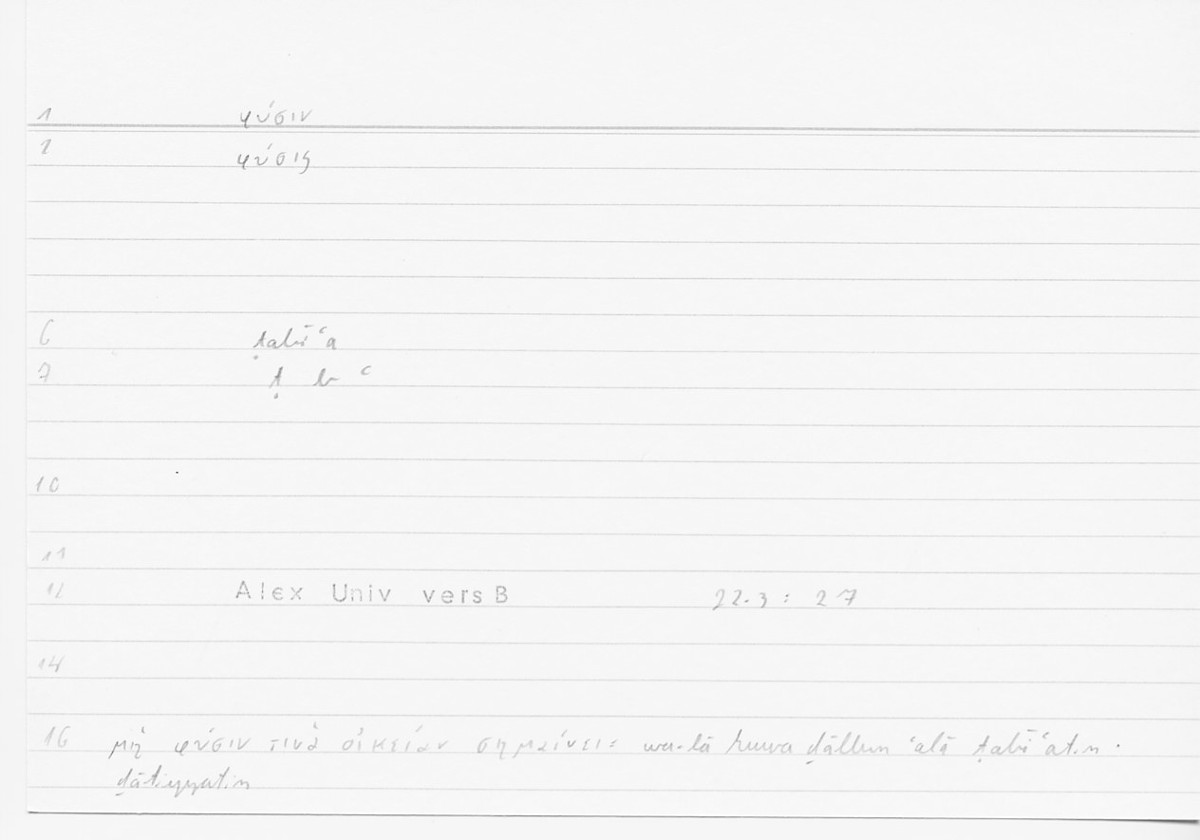 1 φύσιν
2 φύσις
6 ṭabīʿa
7 ṭ b ʿ
10
11
12 Alex Univ vers B 22.3 : 27
14
16 μὴ φύσιν τινὰ οἰκείαν σημαίνει: wa-lā huwa dāllun ʿalā ṭabīʿatin
ḏātiyyatin